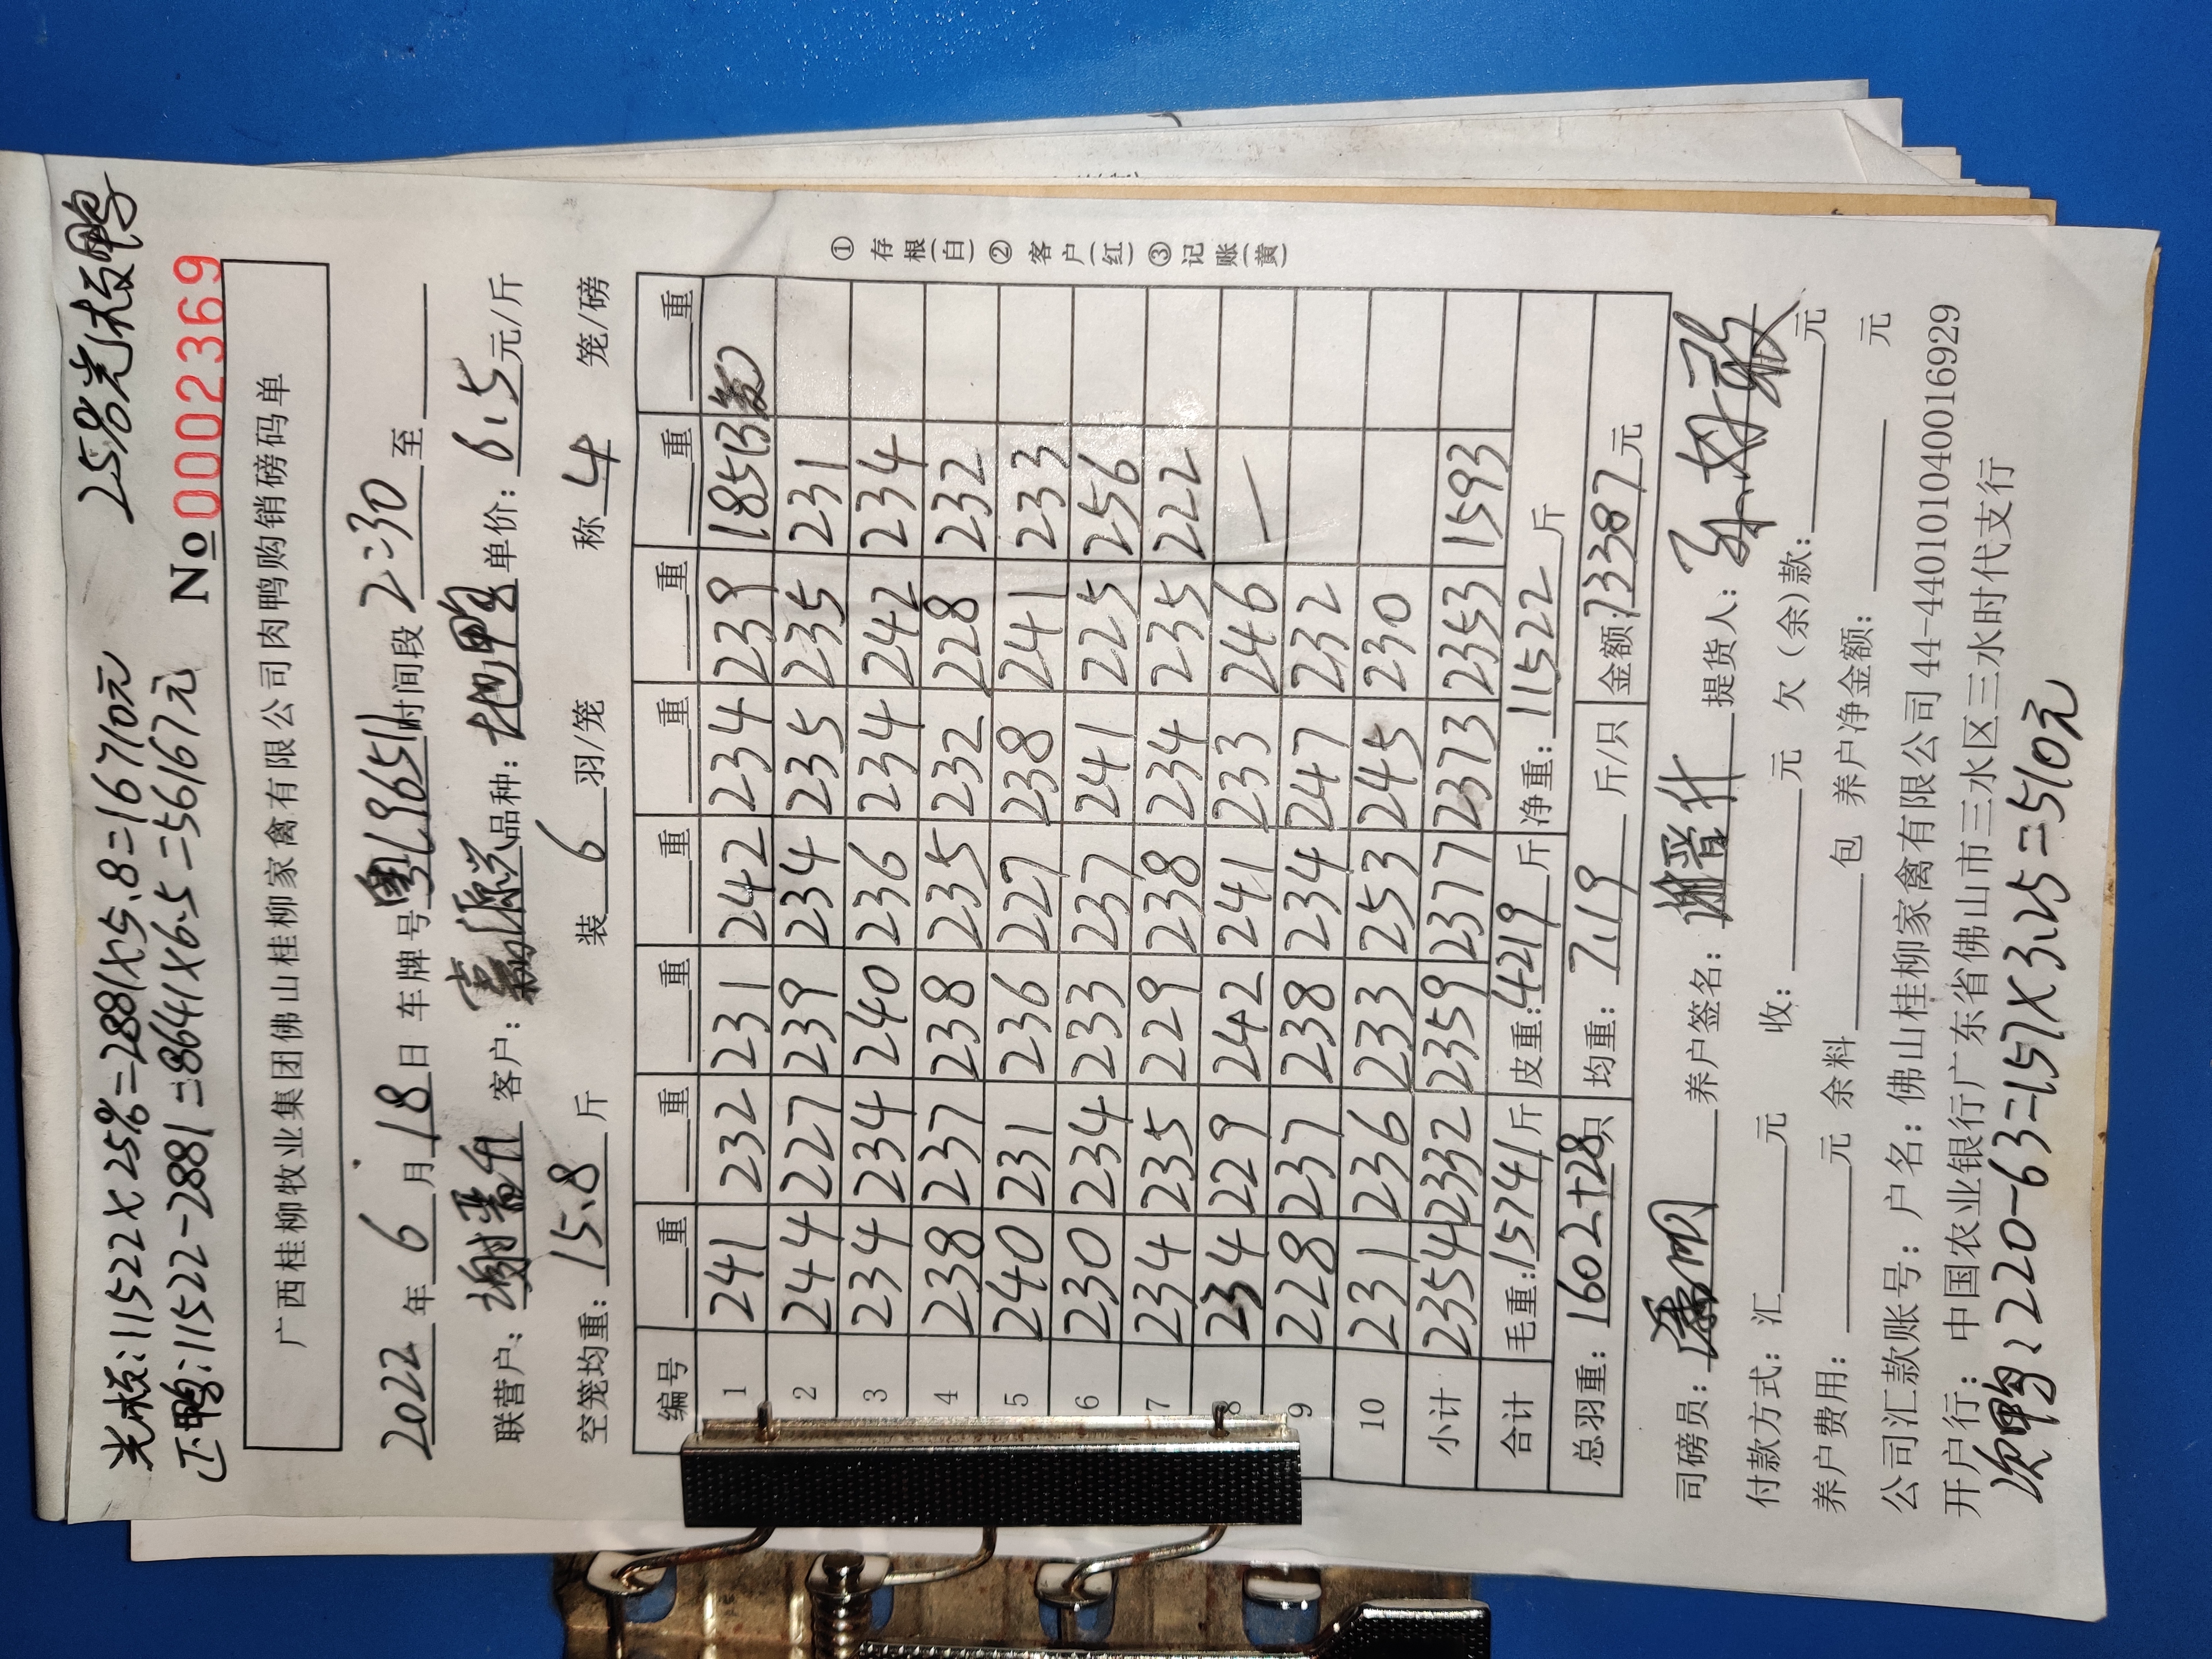 25%光板鸭
光板:11522×25%=2881×5.8=16710元
正鸭:11522-2881=8641×6.5=56167元
№0002369
广西桂柳牧业集团佛山桂柳家禽有限公司肉鸭购销磅码单
2022年6月18日 车牌号粤L3651时间段2:30至
联营户:谢晋升 客户:源兴品种:土电鸭 单价:6.5元/斤
空笼均重:15.8斤 装6羽/笼 称4笼/磅
编号 重 重 重 重 重 重 重 重
1 241 232 231 242 234 239 185(3笼)
2 244 227 239 234 235 235 231
3 234 234 240 236 234 242 234
4 238 237 238 235 232 228 232
5 240 231 236 227 238 241 233
6 230 234 233 237 241 225 256
7 234 235 229 238 234 235 222
8 234 229 242 241 233 246 —
9 228 237 238 234 247 232
10 231 236 233 253 245 230
小计 2354 2332 2359 2377 2373 2353 1593
合计 毛重:15741斤 皮重:4219斤 净重:11522斤
总羽重:1602+28只 均重:7.19斤/只 金额:73387元
司磅员: 养户签名:谢晋升 提货人:
付款方式:汇 元 收: 元 欠(余)款: 元
养户费用: 元 余料 包 养户净金额: 元
公司汇款账号:户名:佛山桂柳家禽有限公司 44-440101040016929
开户行:中国农业银行广东省佛山市三水区三水时代支行
次鸭:220-63=157×3.25=510元
①存根(白)②客户(红)③记账(黄)